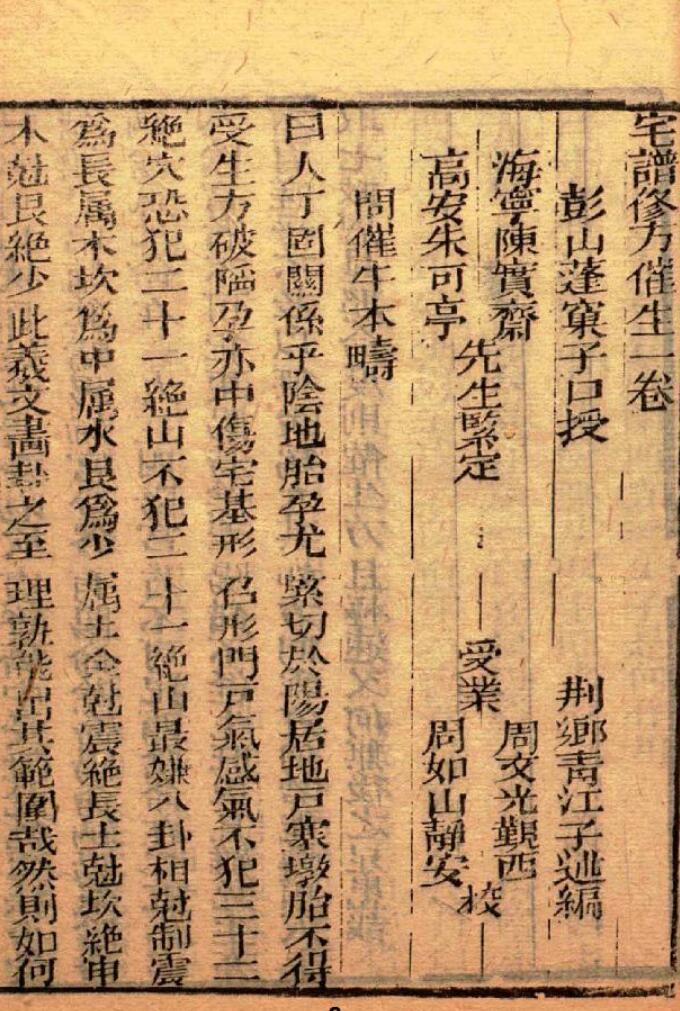 宅譜修方催生一卷
彭山蓬窠子口授 荆鄉青江子述編
海寧陳實齋
高安朱可亭
先生鑒定
受業
周文光觀西
周如山靜安
校
問催生本疇
曰人丁固關係乎陰地胎孕尤緊切於陽居地戶寒墩胎不得
受生方破陷孕亦中傷宅基形召形門戸氣感氣不犯三十二
絶穴恐犯二十一絶山不犯二十一絶山最嫌八卦相尅制震
爲長属木坎爲中属水艮爲少属土金尅震絶長土尅坎絶中
木尅艮絶少此羲文畵卦之至理孰能出其範圍哉然則如何